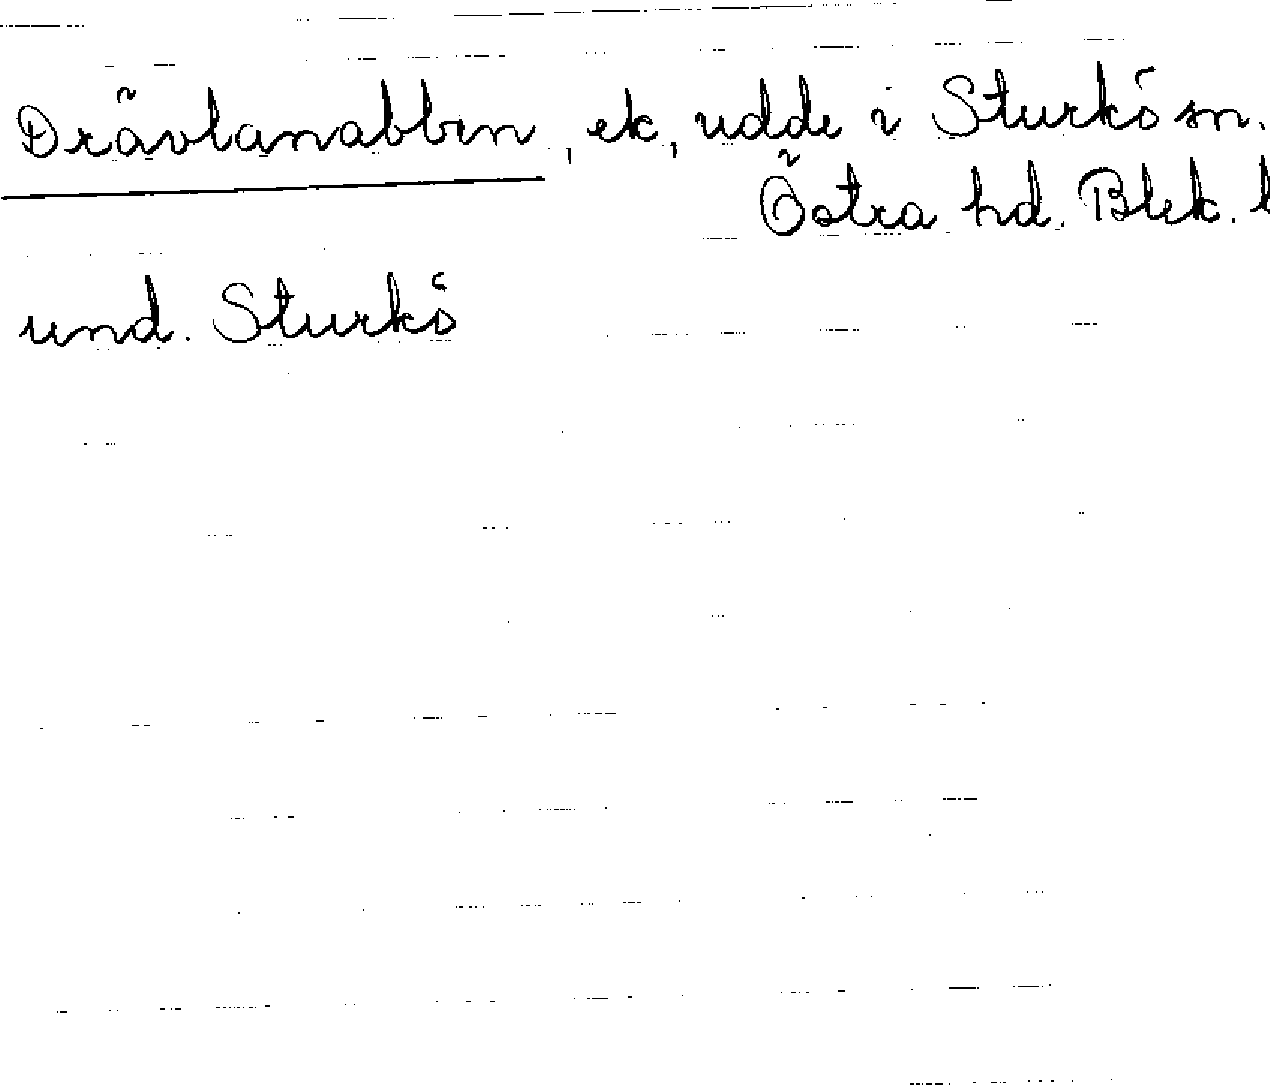 Drävlanabben, ek, udde i Sturkö sn.
Östra hd. Blek. l
und. Sturkö